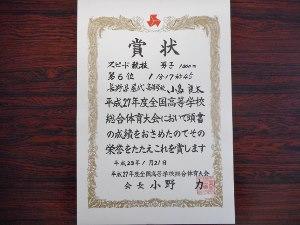 賞状
スピード競技 男子 1000m
第6位 1分17秒45
長野県屋代高等学校 小島良太
平成27年度全国高等学校
総合体育大会において頭書
の成績をおさめたのでその
栄誉をたたえこれを賞します
平成28年1月21日
平成27年度全国高等学校総合体育大会
会長 小野 力